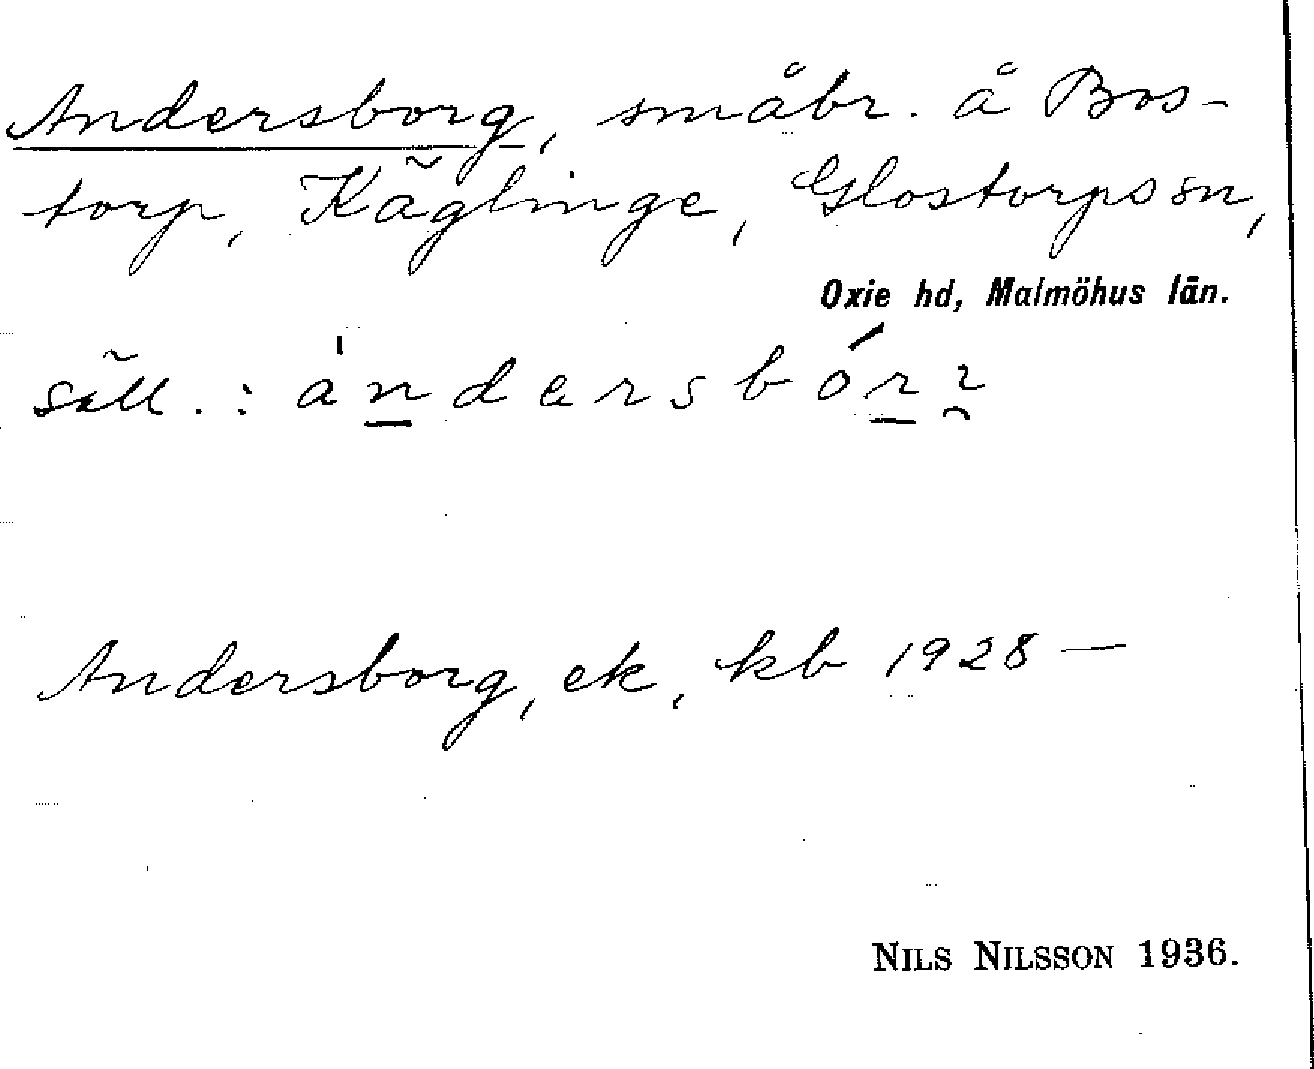 Andersborg, småbr. å Bos-
torp, Käglinge, Glostorps sn,
Oxie hd, Malmöhus län.
säll.:
Andersborg, ek, kb 1928 —
NILS NILSSON 1936.